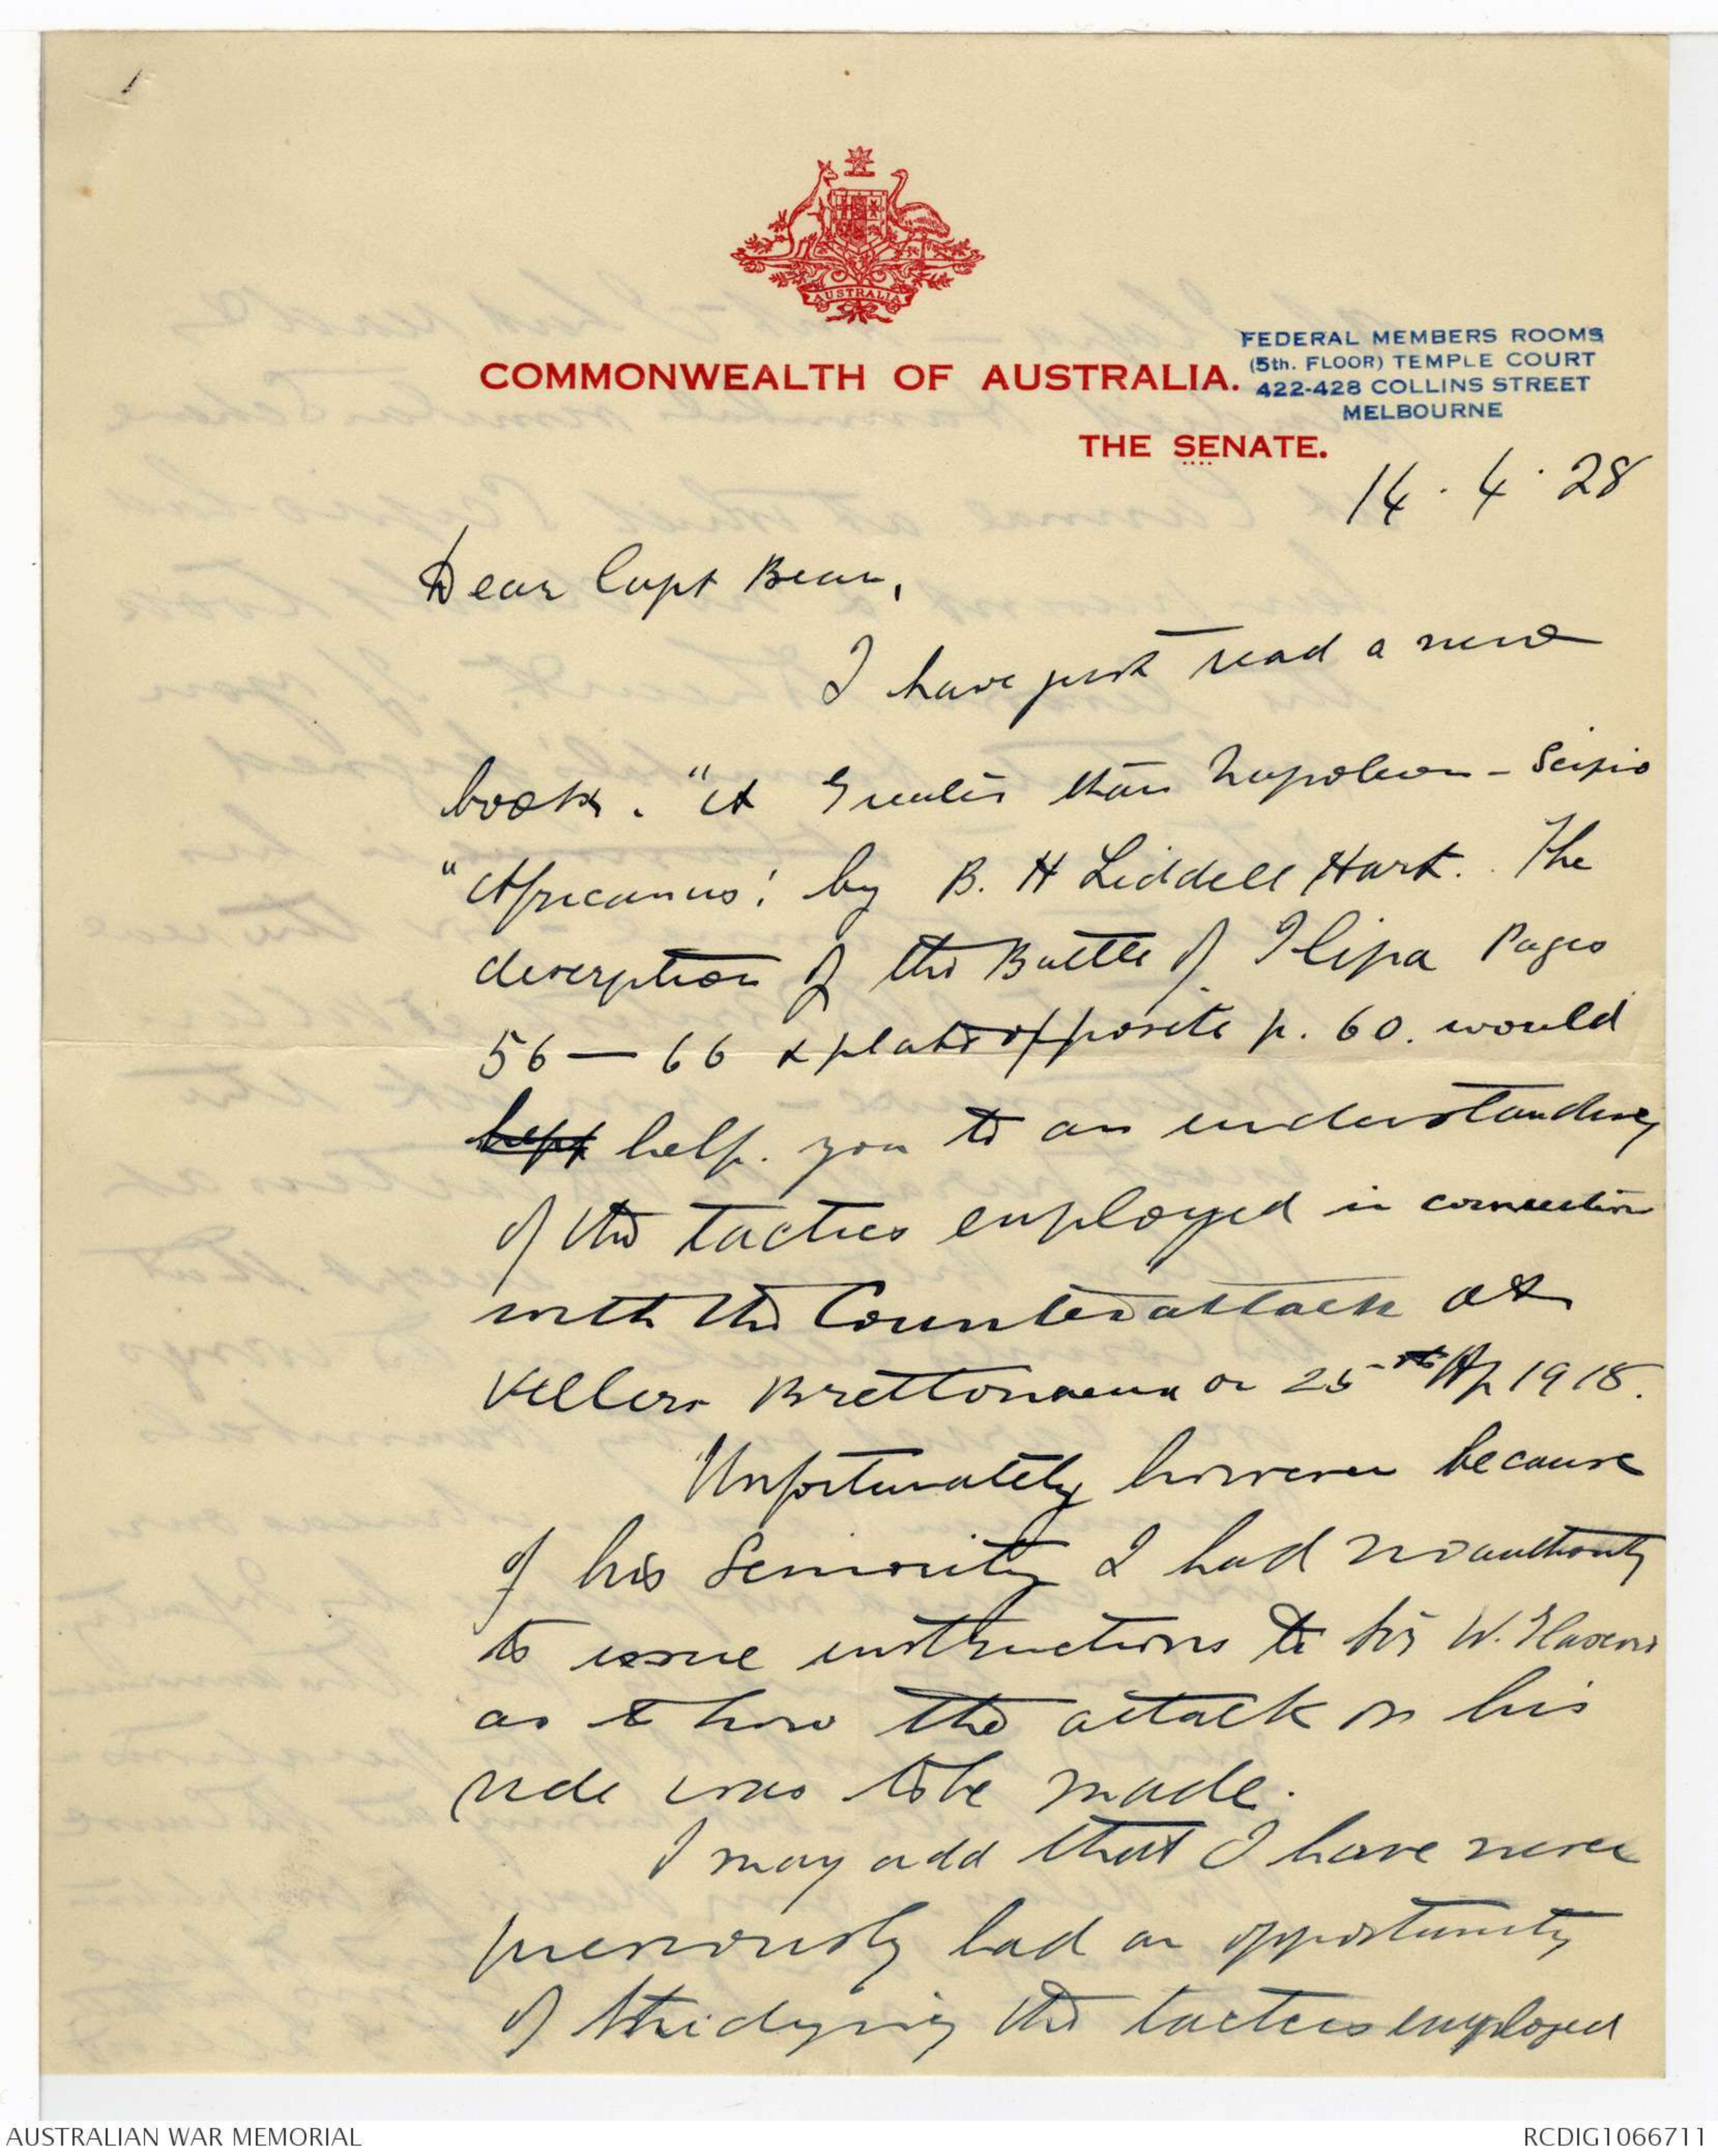 1
AUSTRALIA
COMMONWEALTH OF AUSTRALIA.
FEDERAL MEMBERS ROOMS
(5th. FLOOR) TEMPLE COURT
422-428 COLLINS STREET
MELBOURNE
THE SENATE.
14. 4. 28
Dear Capt Bean,
I have just read a new
book. "A Greater than Napoleon - Scipio
"Africanus". by B. H Liddell Hart. The
description of the Battle of Ilipa Pages
56 — 66 & plate opposite p. 60. would
kept help. you to an understanding
of the tactics employed in connection
with the Counterattack at
Villers Brettonneux on 25th Ap 1918.
Unfortunately however because
of his Seniority I had no authority
to issue instructions to Sir W. Glasgow
as to how the attack on his
side was to be made.
I may add that I have never
previously had an opportunity
of studying the tactics employed
AUSTRALIAN WAR MEMORIAL
RCDIG1066711